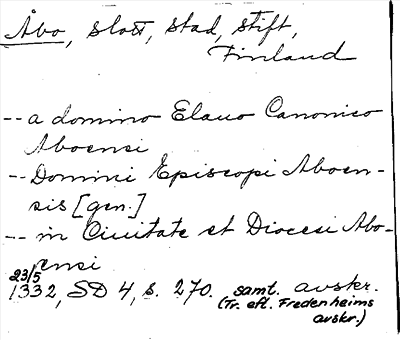 Åbo, slott, stad, stift,
Finland
-- a domino Elauo Canonico
Aboensi
-- Domini Episcopi Aboen-
sis [gen.]
-- in Ciuitate et Diocesi Abo-
ensi
23/5
1332, SD 4, s. 270. samt. avskr.
(Tr. eft. Fredenheims
avskr.)